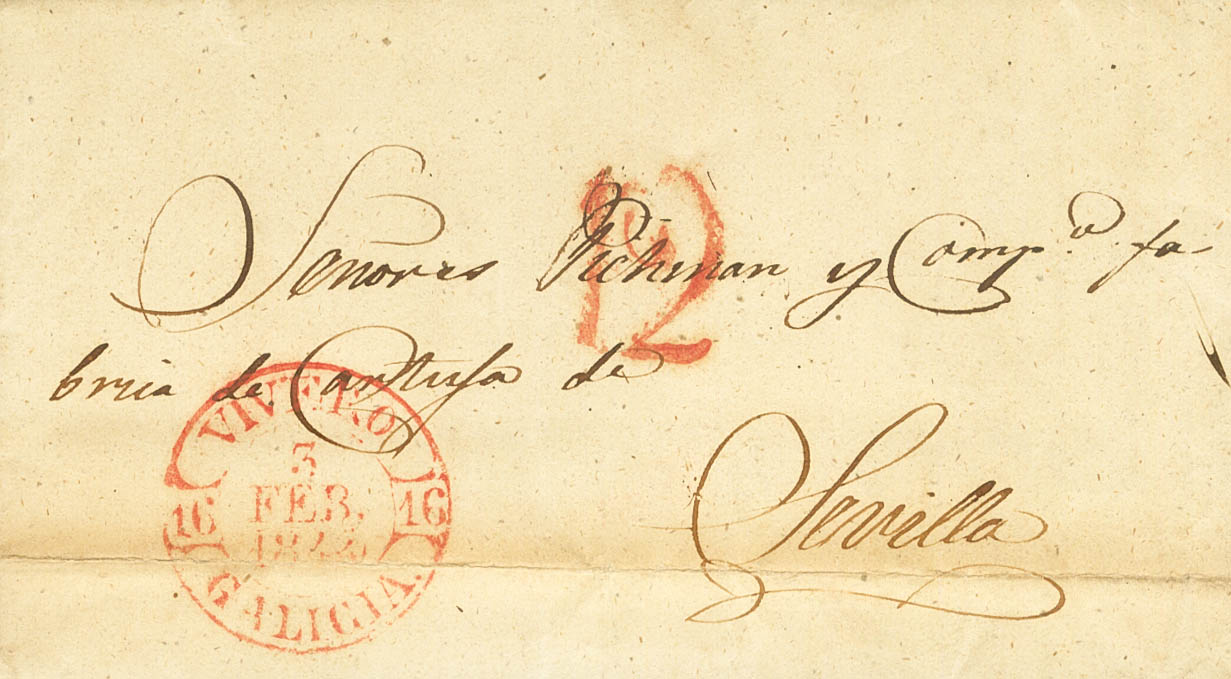 12
Señores Pichman y Comp.ª fa
brica de Cartuja de
Sevilla
VIVERO
3
FEB.
16 16
GALICIA.